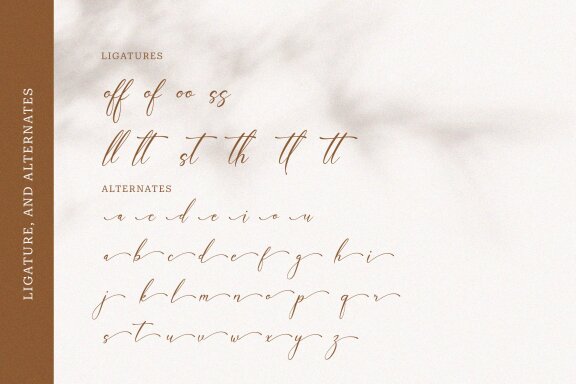 LIGATURE, AND ALTERNATES
LIGATURES
off of oo ss
ll lt st th tl tt
ALTERNATES
a c d e i o u
a b c d e f g h i
j k l m n o p q r
s t u v w x y z